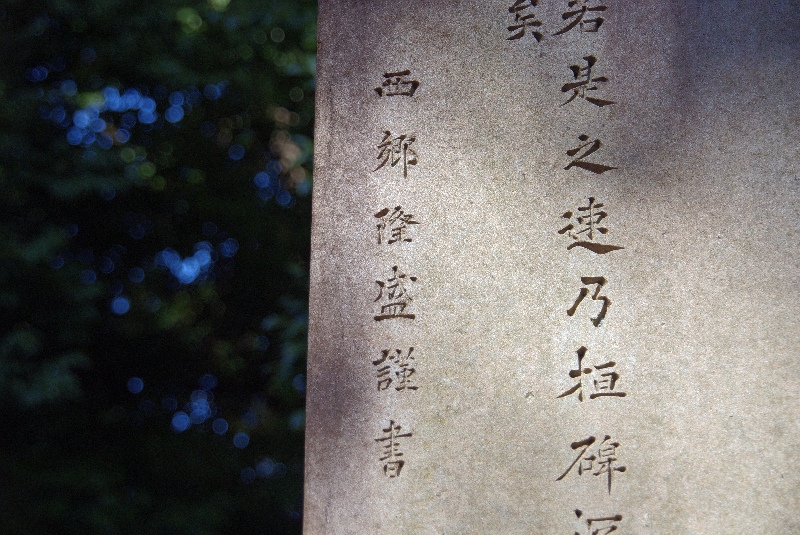 若是之速乃桓碑
矣
西郷隆盛謹書